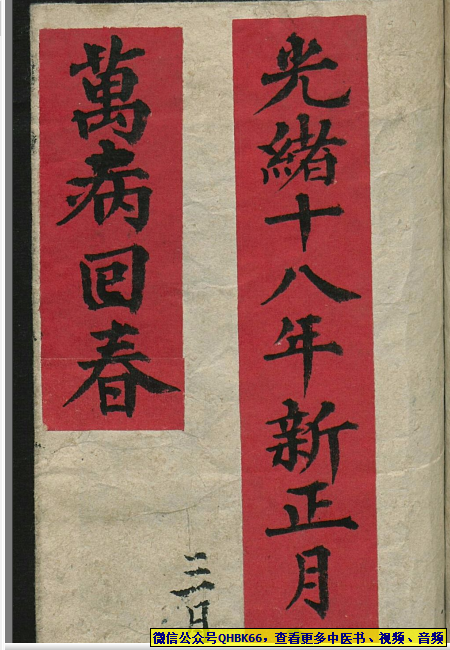 光緒十八年新正月
萬病回春
三月
微信公众号QHBK66，查看更多中医书、视频、音频